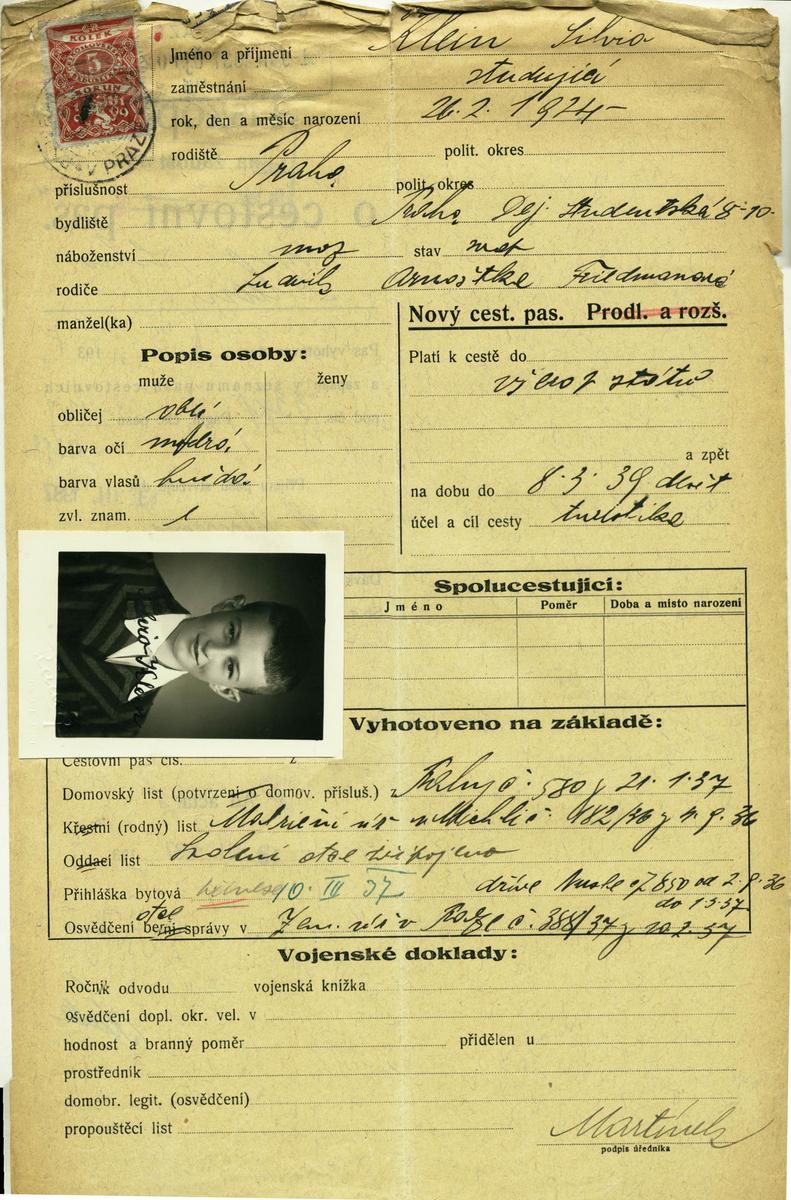 KOLEK
5
V PRAZE
Jméno a příjmení Klein Silvio
zaměstnání studující
rok, den a měsíc narození 26. 2. 1924
rodiště Praha polit. okres
příslušnost polit. okres
bydliště Praha Dej. Studentská 8-10.
náboženství moz stav svob
rodiče Ludvík Arnoštka Friedmanová
manžel(ka)
Nový cest. pas. Prodl. a rozš.
Popis osoby:
muže ženy
obličej oblý
barva očí modrá
barva vlasů hnědá
zvl. znam.
Platí k cestě do
všech států
a zpět
na dobu do 8. 3. 39
účel a cíl cesty turistika
Spolucestující:
Jméno Poměr Doba a místo narození
Vyhotoveno na základě:
Cestovní pas čís. z
Domovský list (potvrzení o domov. přísluš.) z Prahy č. 580 z 21. 1. 37
Křestní (rodný) list Matriční úř. v Michli č. 182/36 z 4. 9. 36
Oddací list Svolení otce připojeno
Přihláška bytová 10. III 37 dříve Nusle č 850 od 2. 9. 36
do 1.3.37.
Osvědčení berní správy v Zem. úř. v Praze č. 388/37 z 10. 2. 37
otce
Vojenské doklady:
Ročník odvodu vojenská knížka
osvědčení dopl. okr. vel. v
hodnost a branný poměr přidělen u
prostředník
domobr. legit. (osvědčení)
propouštěcí list
Martínek
podpis úředníka